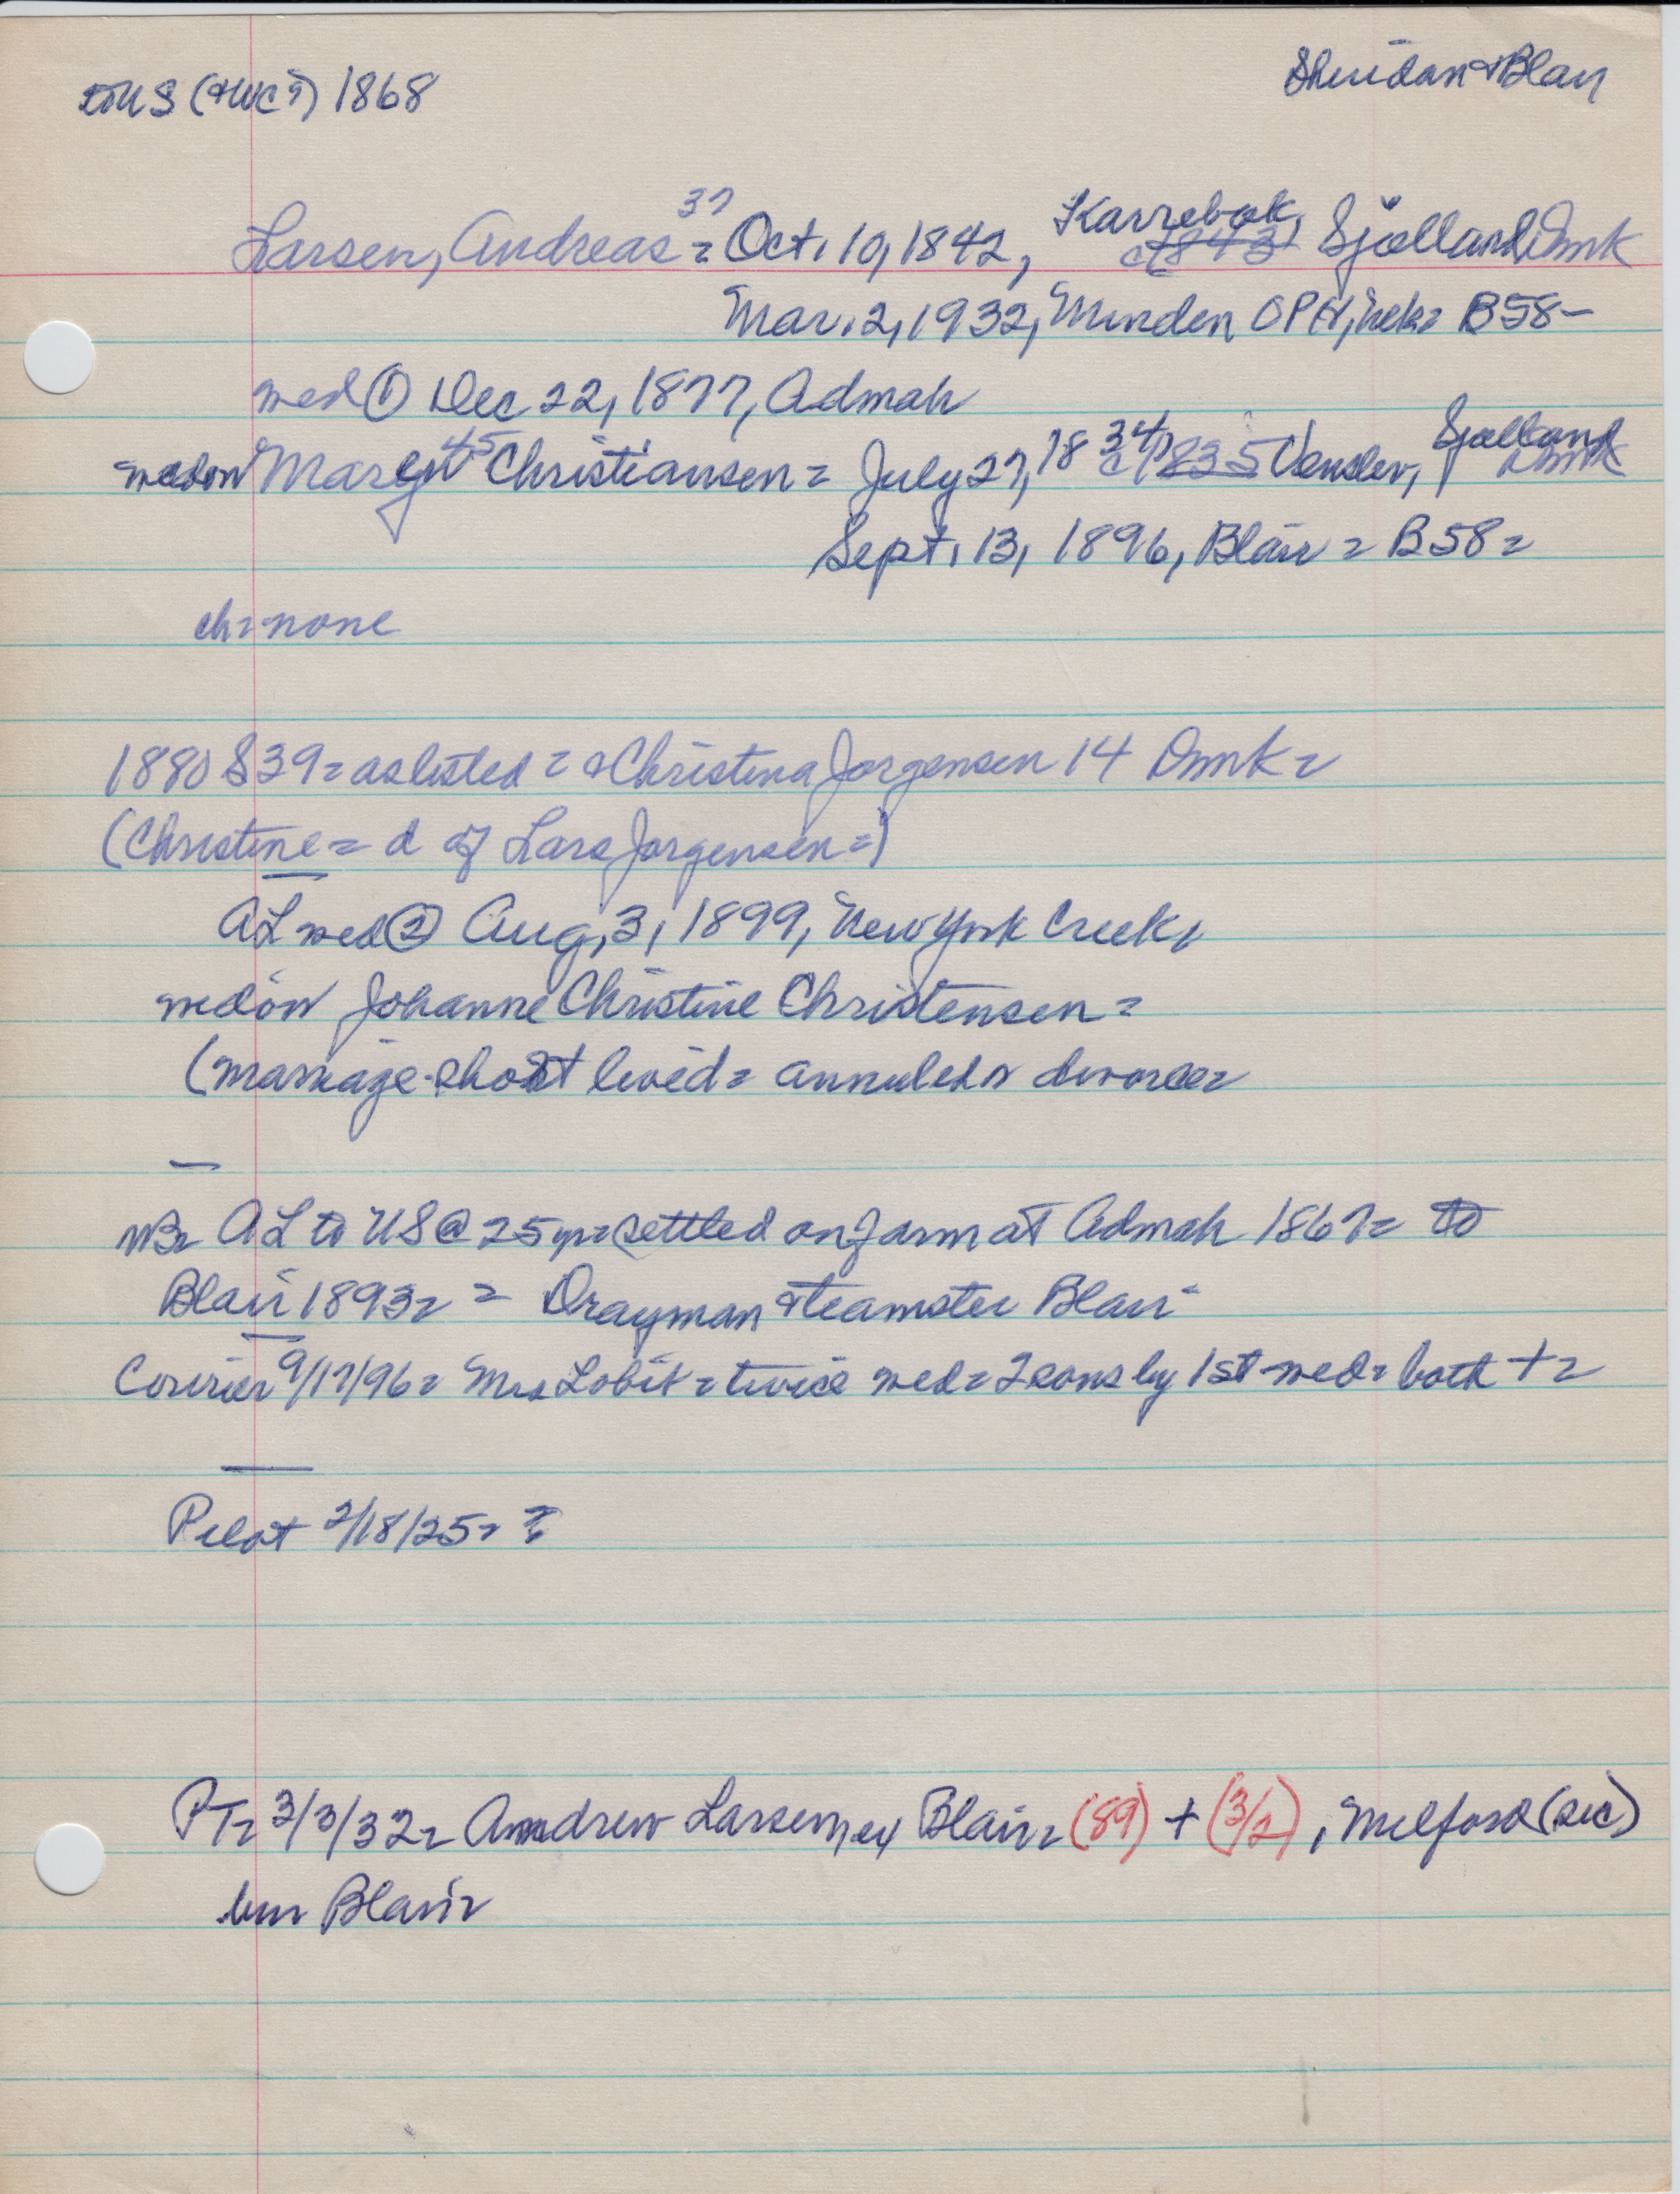 US (+WC?) 1868
Sheridan + Blair
37
Larsen, Andreas = Oct. 10, 1842, Karrebak, c1843 Sjælland Dmk
Mar. 2, 1932, Minden OPH, Neb = B58-
med ① Dec 22, 1877, Admah
45
widow Margt Christiansen = July 27, 1834 c1835 Venslev, Sjælland Dmk
Sept. 13, 1896, Blair = B58 =
ch = none
1880 S39 = as listed = + Christina Jorgensen 14 Dmk =
(Christine = d of Lars Jorgensen =)
AL med ② Aug. 3, 1899, New York Creek,
widow Johanne Christine Christensen =
(marriage short lived = annuled or divorce =
NB = AL to US @ 25 yr = settled on farm at Admah 1867 = to
Blair 1893 = = Drayman + teamster Blair -
Courier 9/17/96 = Mrs L obit = twice med = 2 sons by 1st med = both + =
Pilot 2/18/25 = ?
PT = 3/3/32 = Andrew Larsen, ex Blair = (89) + (3/2), Milford (sic)
bur Blair =